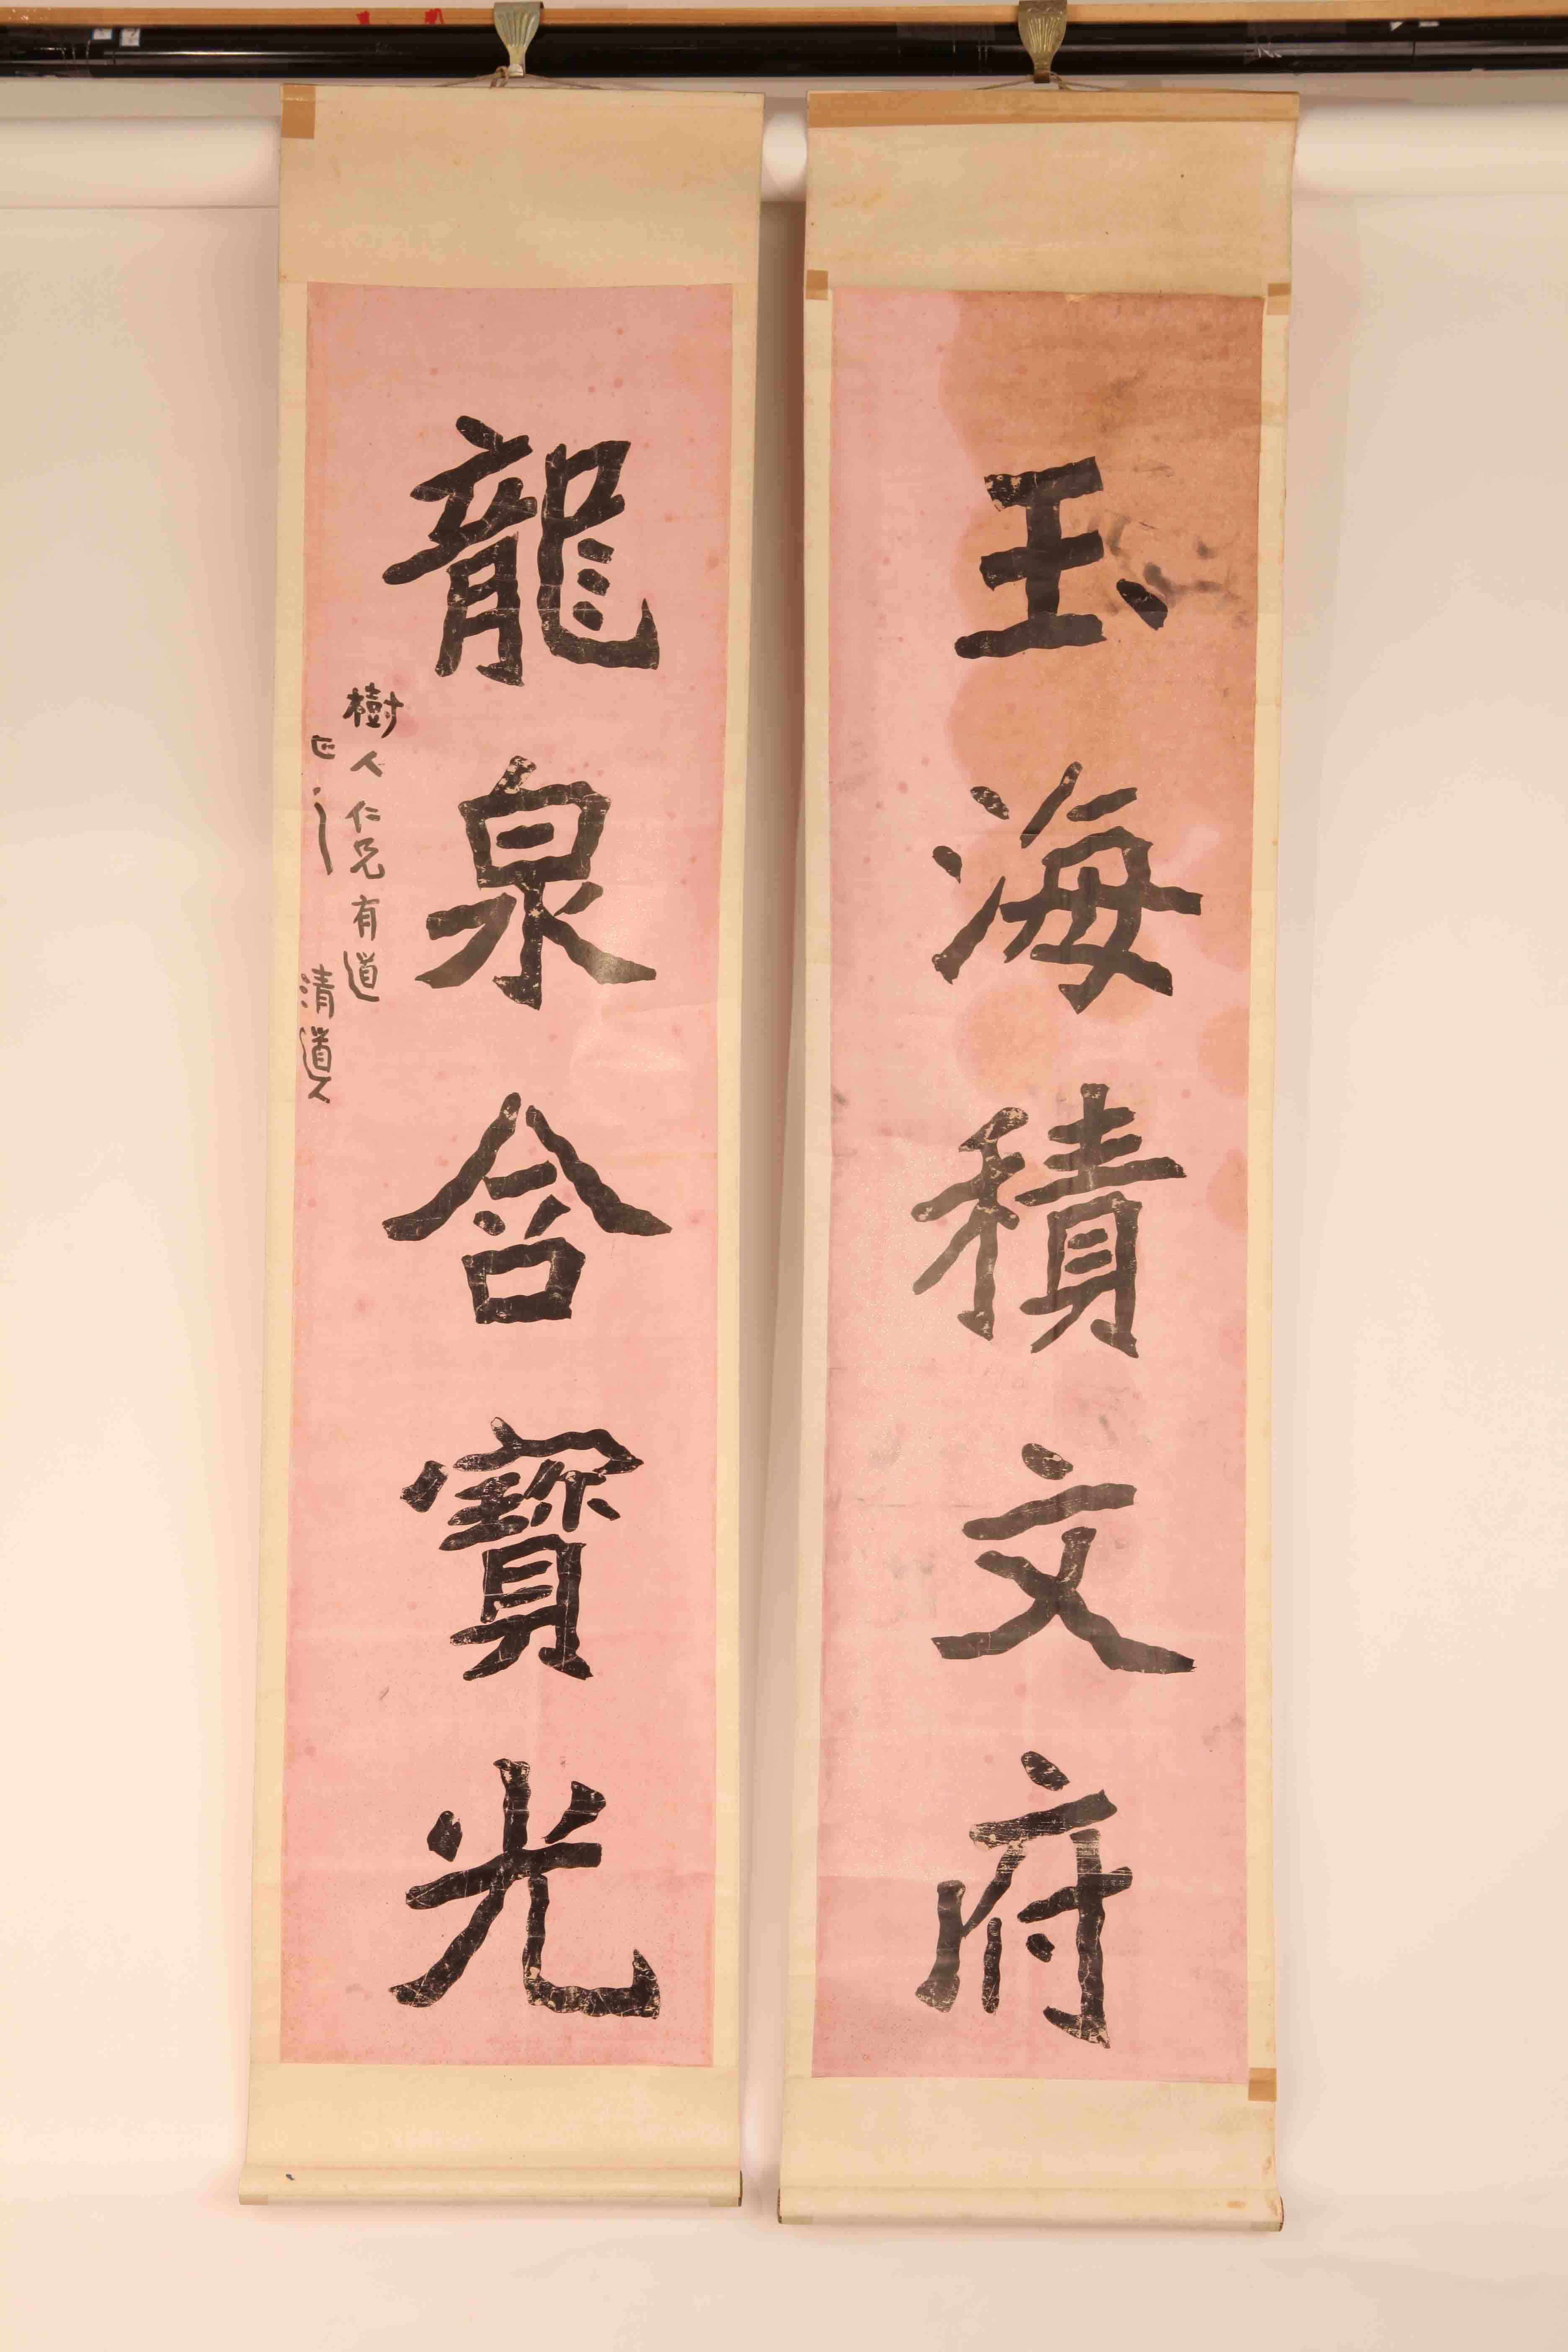 玉海積文府
龍泉含寶光
樹人仁兄有道
正之
清道人